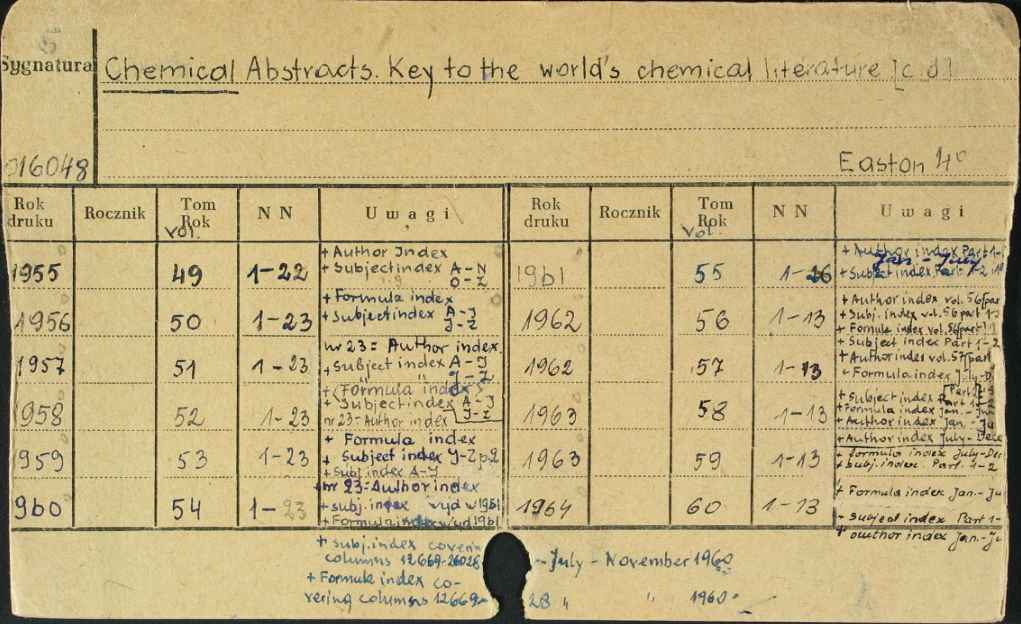 Sygnatura
Chemical Abstracts. Key to the world's chemical literature [c.d]
016048
Easton 4°
Rok druku Rocznik Tom Rok NN Uwagi Rok druku Rocznik Tom Rok NN Uwagi
Vol. Vol.
1955 49 1-22
+ Author Index
+ Subject index A-N
O-Z
1956 50 1-23
+ Formula index
+ Subject index A-I
J-Z
1957 51 1-23
nr 23 = Author index
+ Subject index A-I
J-Z
+ (Formula index)
1958 52 1-23
+ Subject index A-I
J-Z
nr 23 = Author index
1959 53 1-23
+ Formula index
+ Subject index J-Z p.2
+ Subj. index A-I
960 54 1-23
+ nr 23 = Author index
+ subj. index wyd w 1961
+ Formula index wyd 1961
+ subj. index coverin
columns 12669-26028 - July - November 1960
+ Formula index co-
vering columns 12669- 28 " " 1960
1961 55 1-26
+ Author index Part 1-
Jan. - July
+ Subject index Part 1-2
1962 56 1-13
+ Author index vol. 56 part
+ Subj. index vol. 56 part 1-
+ Formula index vol. 56
+ Subject index Part 1-2
1962 57 1-13
+ Author index vol. 57 part
- Formula index July-D
1963 58 1-13
+ Subject index Part
+ Formula index Jan.-Ju
+ Author index Jan.-Ju
+ Author index July-Dece
1963 59 1-13
+ formula index July-De
+ subj. index. Part. 1-2
1964 60 1-13
+ Formula index Jan-Ju
- Subject index Part 1-
+ author index Jan.-Ju